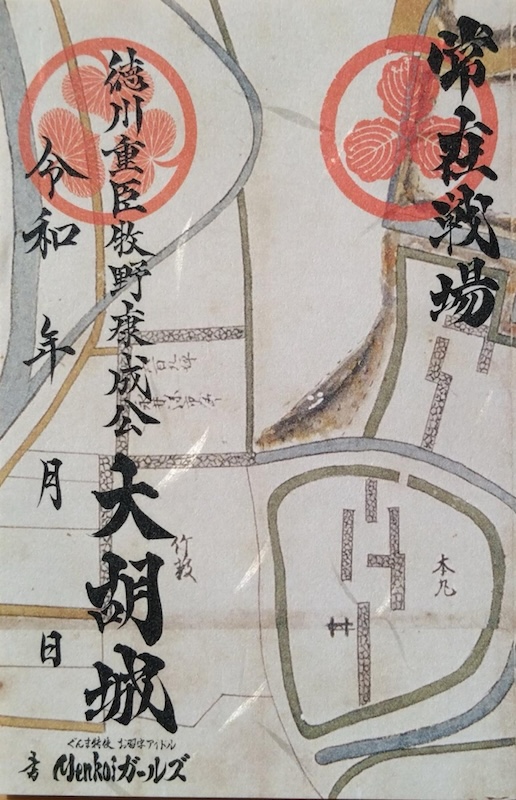 常在戦場
徳川重臣牧野康成公
大胡城
令和 年 月 日
本丸
竹薮
ぐんま特使 お習字アイドル
Menkoiガールズ